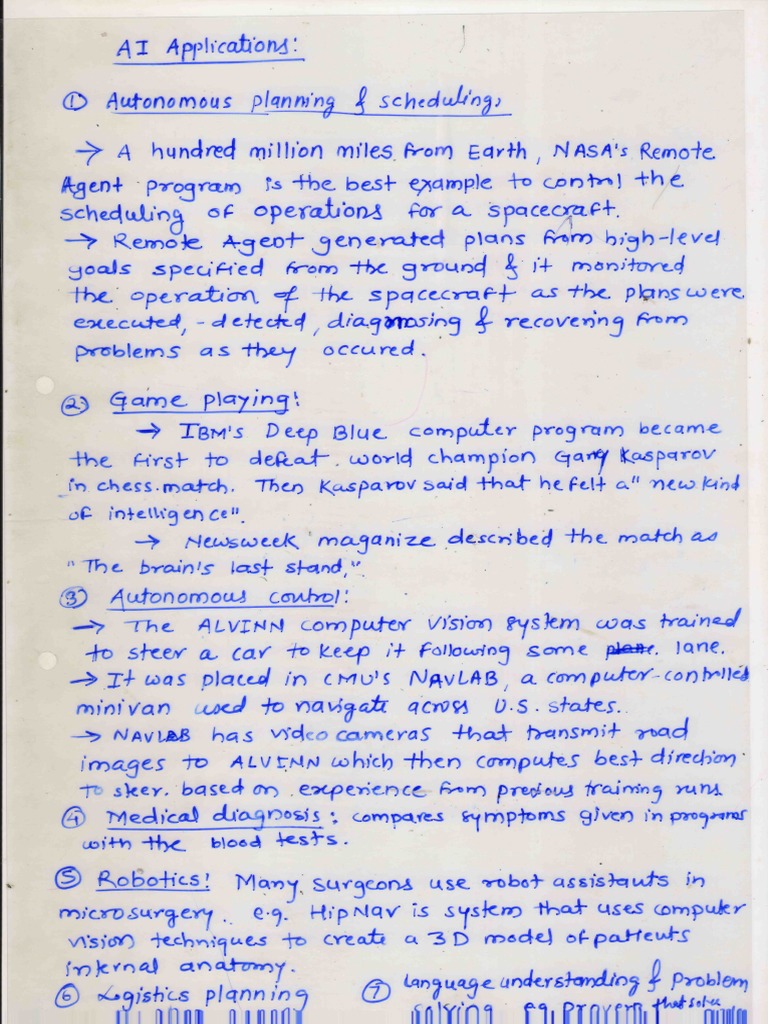 AI Applications:
① Autonomous planning & scheduling,
→ A hundred million miles from Earth, NASA's Remote
Agent program is the best example to control the
scheduling of operations for a spacecraft.
→ Remote Agent generated plans from high-level
goals specified from the ground & it monitored
the operation of the spacecraft as the plans were
executed, - detected, diagnosing & recovering from
problems as they occured.
② Game playing:
→ IBM's Deep Blue computer program became
the first to defeat world champion Gary Kasparov
in chess match. Then Kasparov said that he felt a "new kind
of intelligence".
→ Newsweek maganize described the match as
"The brain's last stand,".
③ Autonomous control:
→ The ALVINN computer vision system was trained
to steer a car to keep it following some lane.
→ It was placed in CMU's NAVLAB, a computer-controlled
minivan used to navigate across U.S. states.
→ NAVLAB has video cameras that transmit road
images to ALVINN which then computes best direction
to steer. based on experience from previous training runs
④ Medical diagnosis: compares symptoms given in programs
with the blood tests.
⑤ Robotics: Many surgeons use robot assistants in
microsurgery. e.g. HipNav is system that uses computer
vision techniques to create a 3D model of patients
internal anatomy.
⑥ Logistics planning ⑦ language understanding & problem
solving eg. Proverb that solve